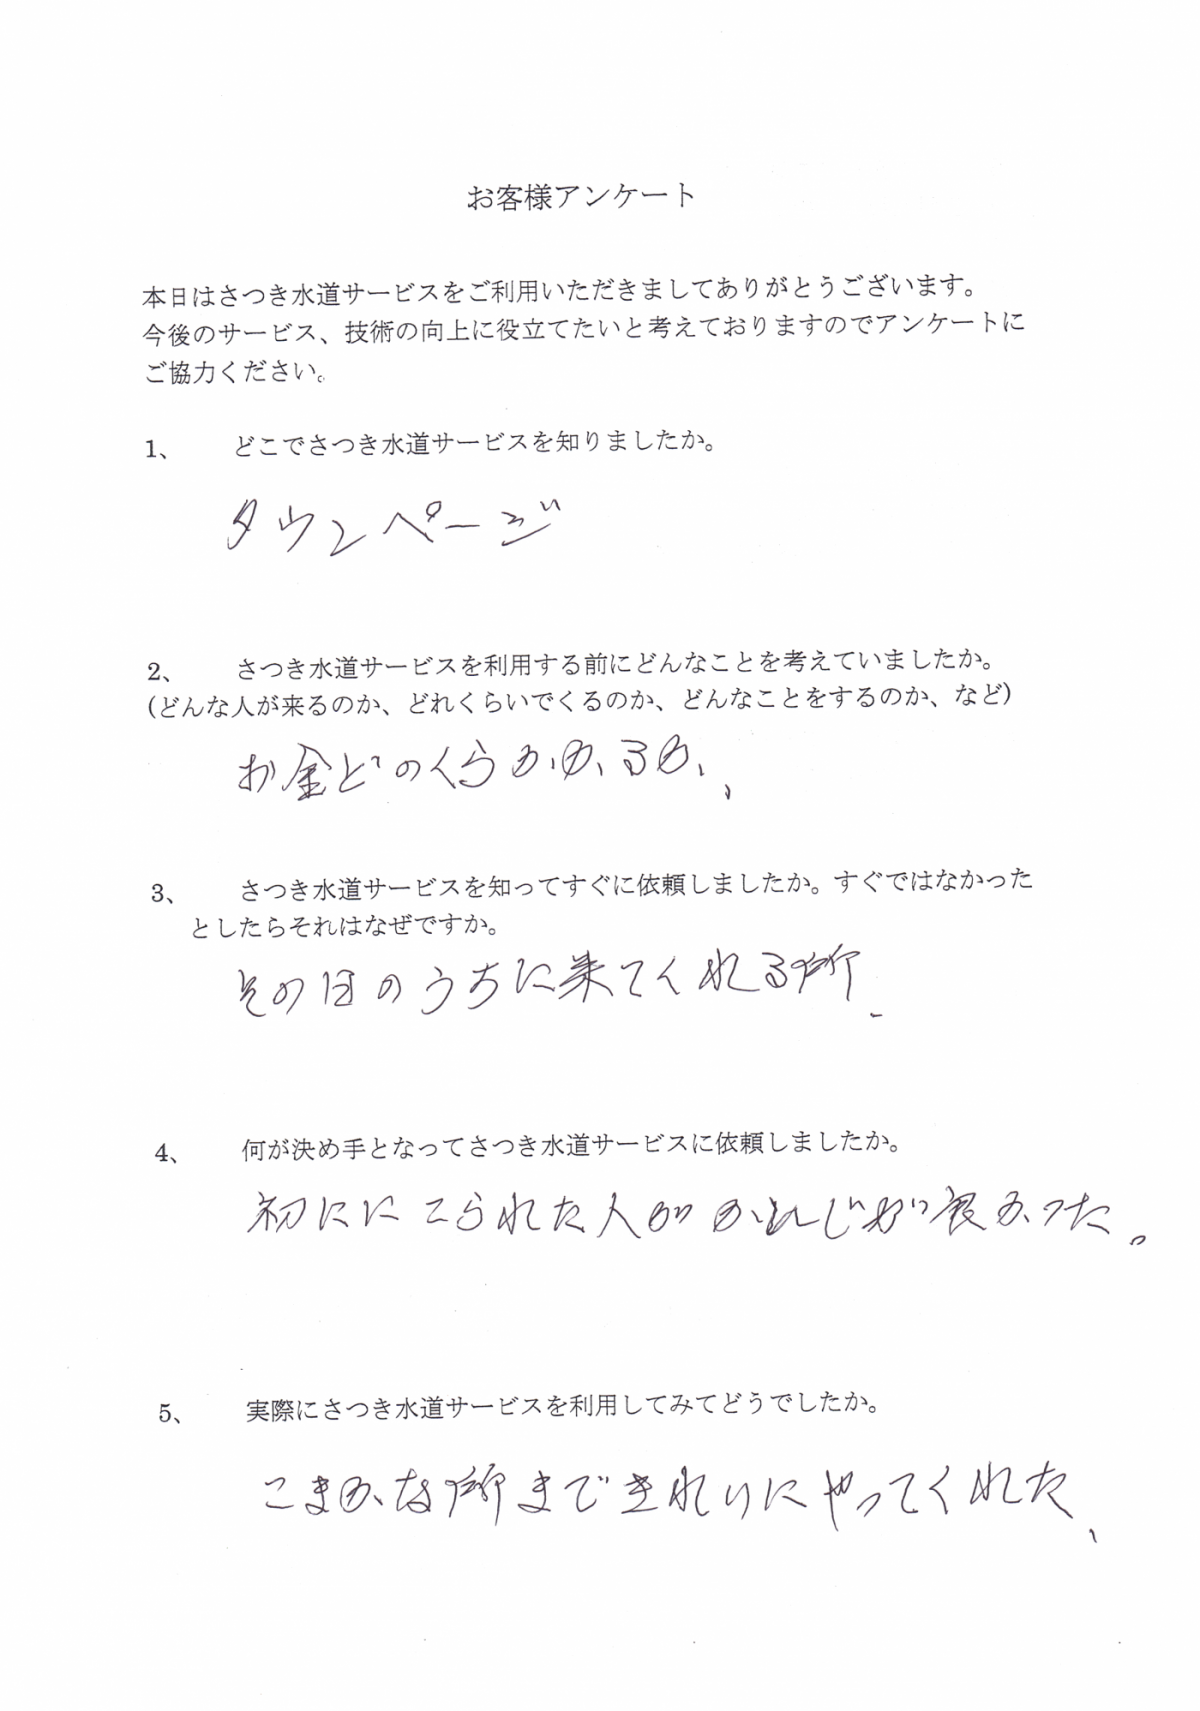 お客様アンケート
本日はさつき水道サービスをご利用いただきましてありがとうございます。
今後のサービス、技術の向上に役立てたいと考えておりますのでアンケートに
ご協力ください。
1、 どこでさつき水道サービスを知りましたか。
タウンページ
2、 さつき水道サービスを利用する前にどんなことを考えていましたか。
(どんな人が来るのか、どれくらいでくるのか、どんなことをするのか、など)
お金どのくらかかるか、
3、 さつき水道サービスを知ってすぐに依頼しましたか。すぐではなかった
としたらそれはなぜですか。
その日のうちに来てくれる所
4、 何が決め手となってさつき水道サービスに依頼しましたか。
初ににこられた人がかんじが良かった。
5、 実際にさつき水道サービスを利用してみてどうでしたか。
こまかな所まできれいにやってくれた、